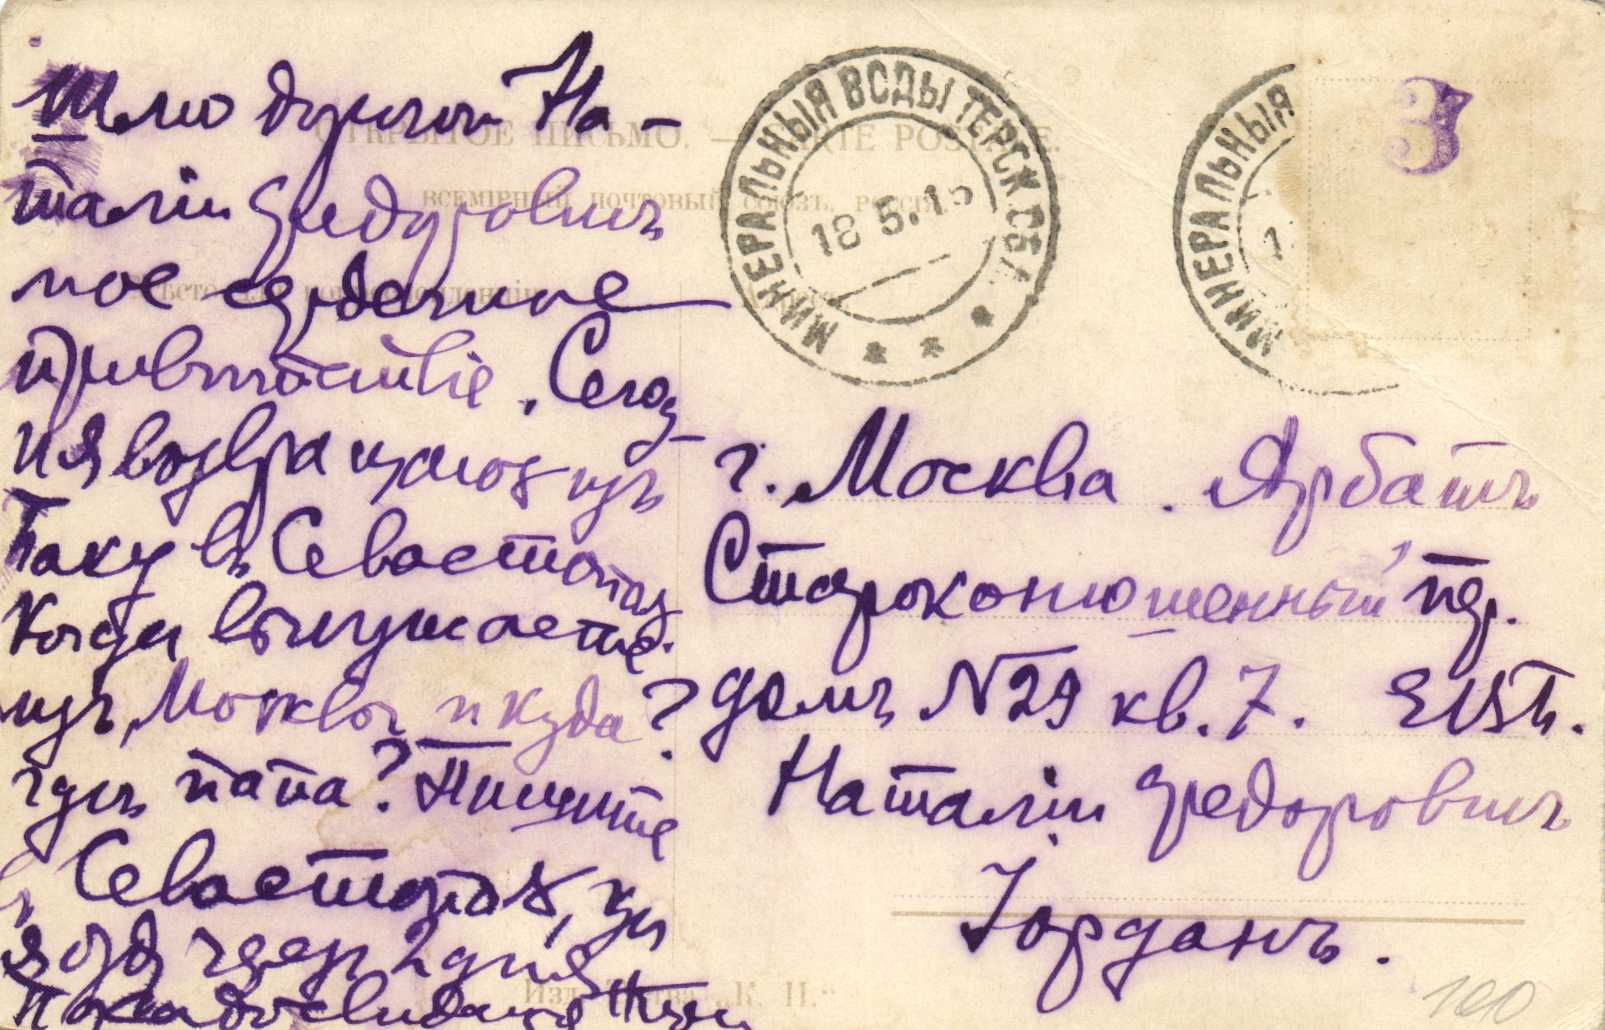 Шлю дорогой На-
талiи Ѳедоровнѣ
мое сердечное
привѣтствiе. Сегод
ня возвращаюсь изъ
Баку въ Севастополь
Когда выѣзжаете
изъ Москвы и куда?
гдѣ папа? Пишите
въ Севастополь, гдѣ
я буду черезъ 2 дня
Пока досвиданiя
ОТКРЫТОЕ ПИСЬМО. — CARTE POSTALE.
ВСЕМIРНЫЙ ПОЧТОВЫЙ СОЮЗЪ. РОССIЯ.
МИНЕРАЛЬНЫЯ ВОДЫ ТЕРСК. ОБЛ.
18 5.15
МИНЕРАЛЬНЫЯ
1
3
г. Москва. Арбатъ
Староконюшенный пер.
домъ №29 кв. 7. ЕВБ.
Наталiи Ѳедоровнѣ
Iорданъ.
"К. П."
100